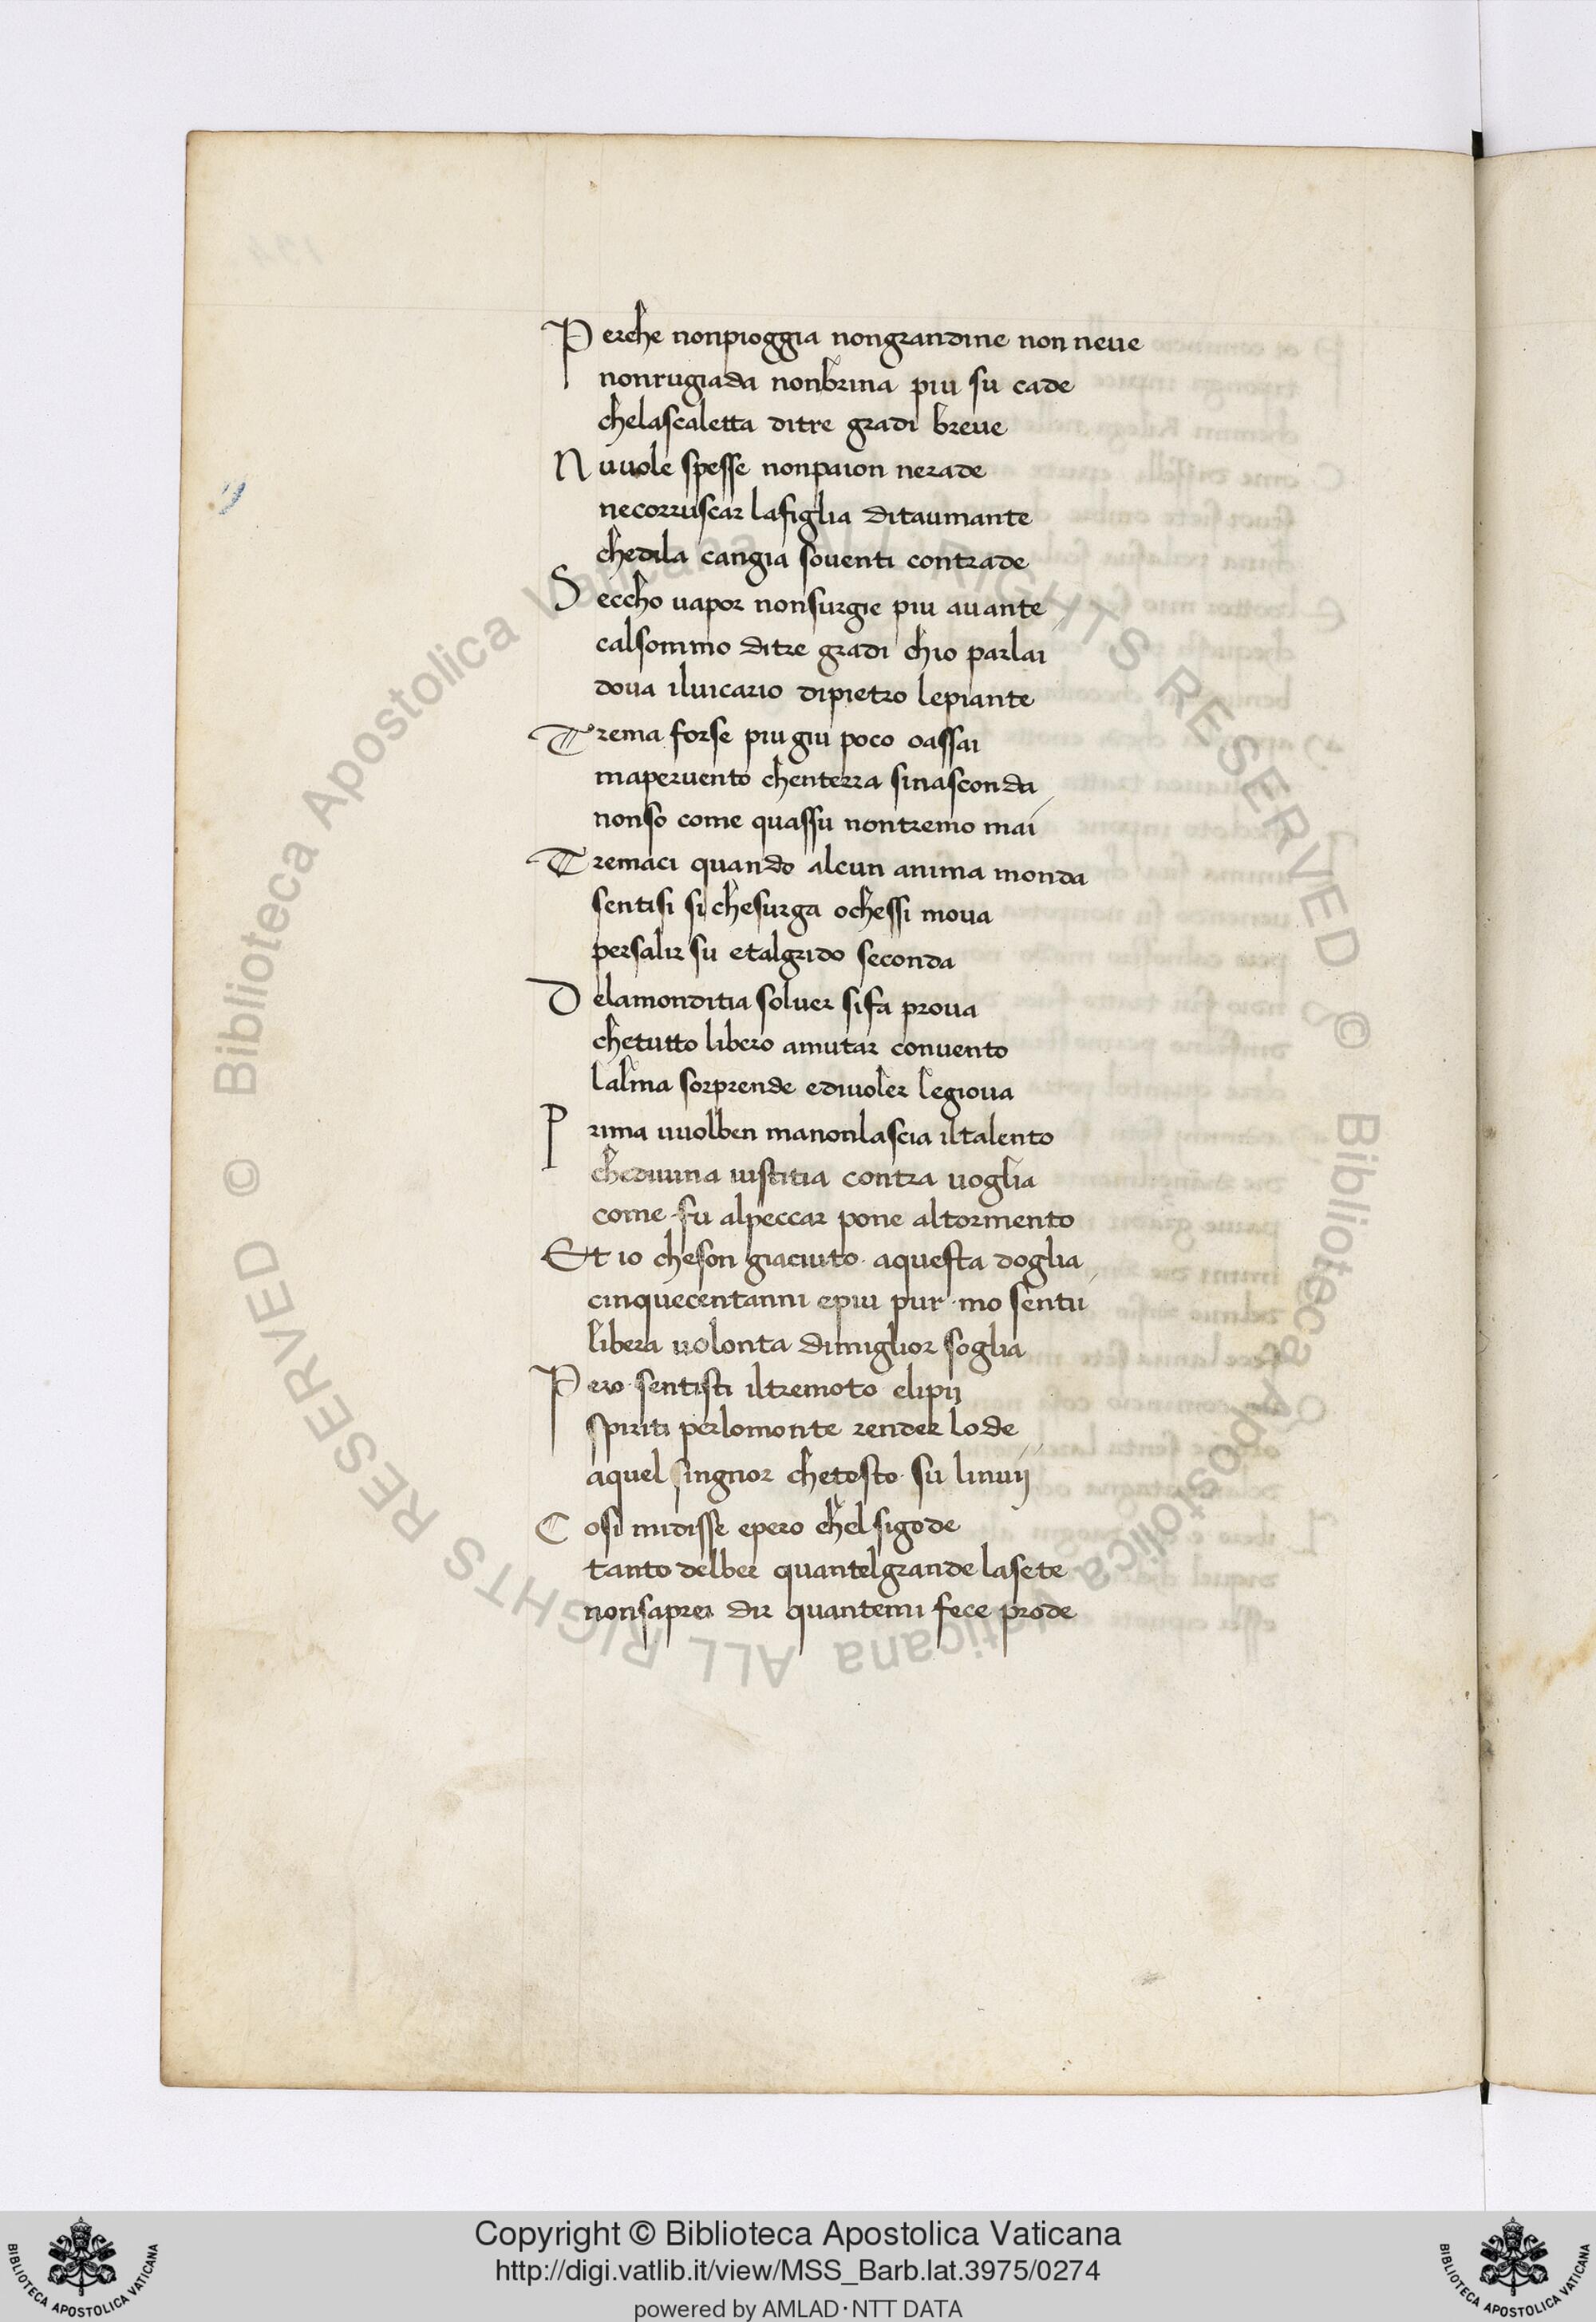 Perche nonpioggia nongrandine non neue
nonrugiada nonbrina piu su cade
chelascaletta ditre gradi breue
Nuuole spesse nonpaion nerade
necorruscar lafiglia ditaumante
chedila cangia soventi contrade
Seccho uapor nonsurgie piu auante
calsommo ditre gradi chio parlai
doua iluicario dipietro lepiante
Trema forse piu giu poco oassai
mapervento chenterra sinasconda
nonso come quassu nontremo mai
Tremaci quando alcun anima monda
sentisi si chesurga ochessi moua
persalir su etalgrido seconda
Delamonditia soluer sifa proua
chetutto libero amutar conuento
lalma sorprende ediuoler legioua
Prima uuolben manonlascia iltalento
chediuina iustitia contra uoglia
come fu alpeccar pone altormento
Et io cheson giaciuto aquesta doglia
cinquecentanni epiu pur mo sentii
libera uolonta dimiglior soglia
Pero sentisti iltremoto elipij
spiriti perlomonte render lode
aquel singnor chetosto su linuij
Cosi midisse epero chel sigode
tanto delber quantelgrande lasete
nonsaprei dir quantemi fece prode
Copyright © Biblioteca Apostolica Vaticana
http://digi.vatlib.it/view/MSS_Barb.lat.3975/0274
powered by AMLAD·NTT DATA
© Biblioteca Apostolica Vaticana ALL RIGHTS RESERVED
© Biblioteca Apostolica Vaticana ALL RIGHTS RESERVED
BIBLIOTECA APOSTOLICA VATICANA
BIBLIOTECA APOSTOLICA VATICANA